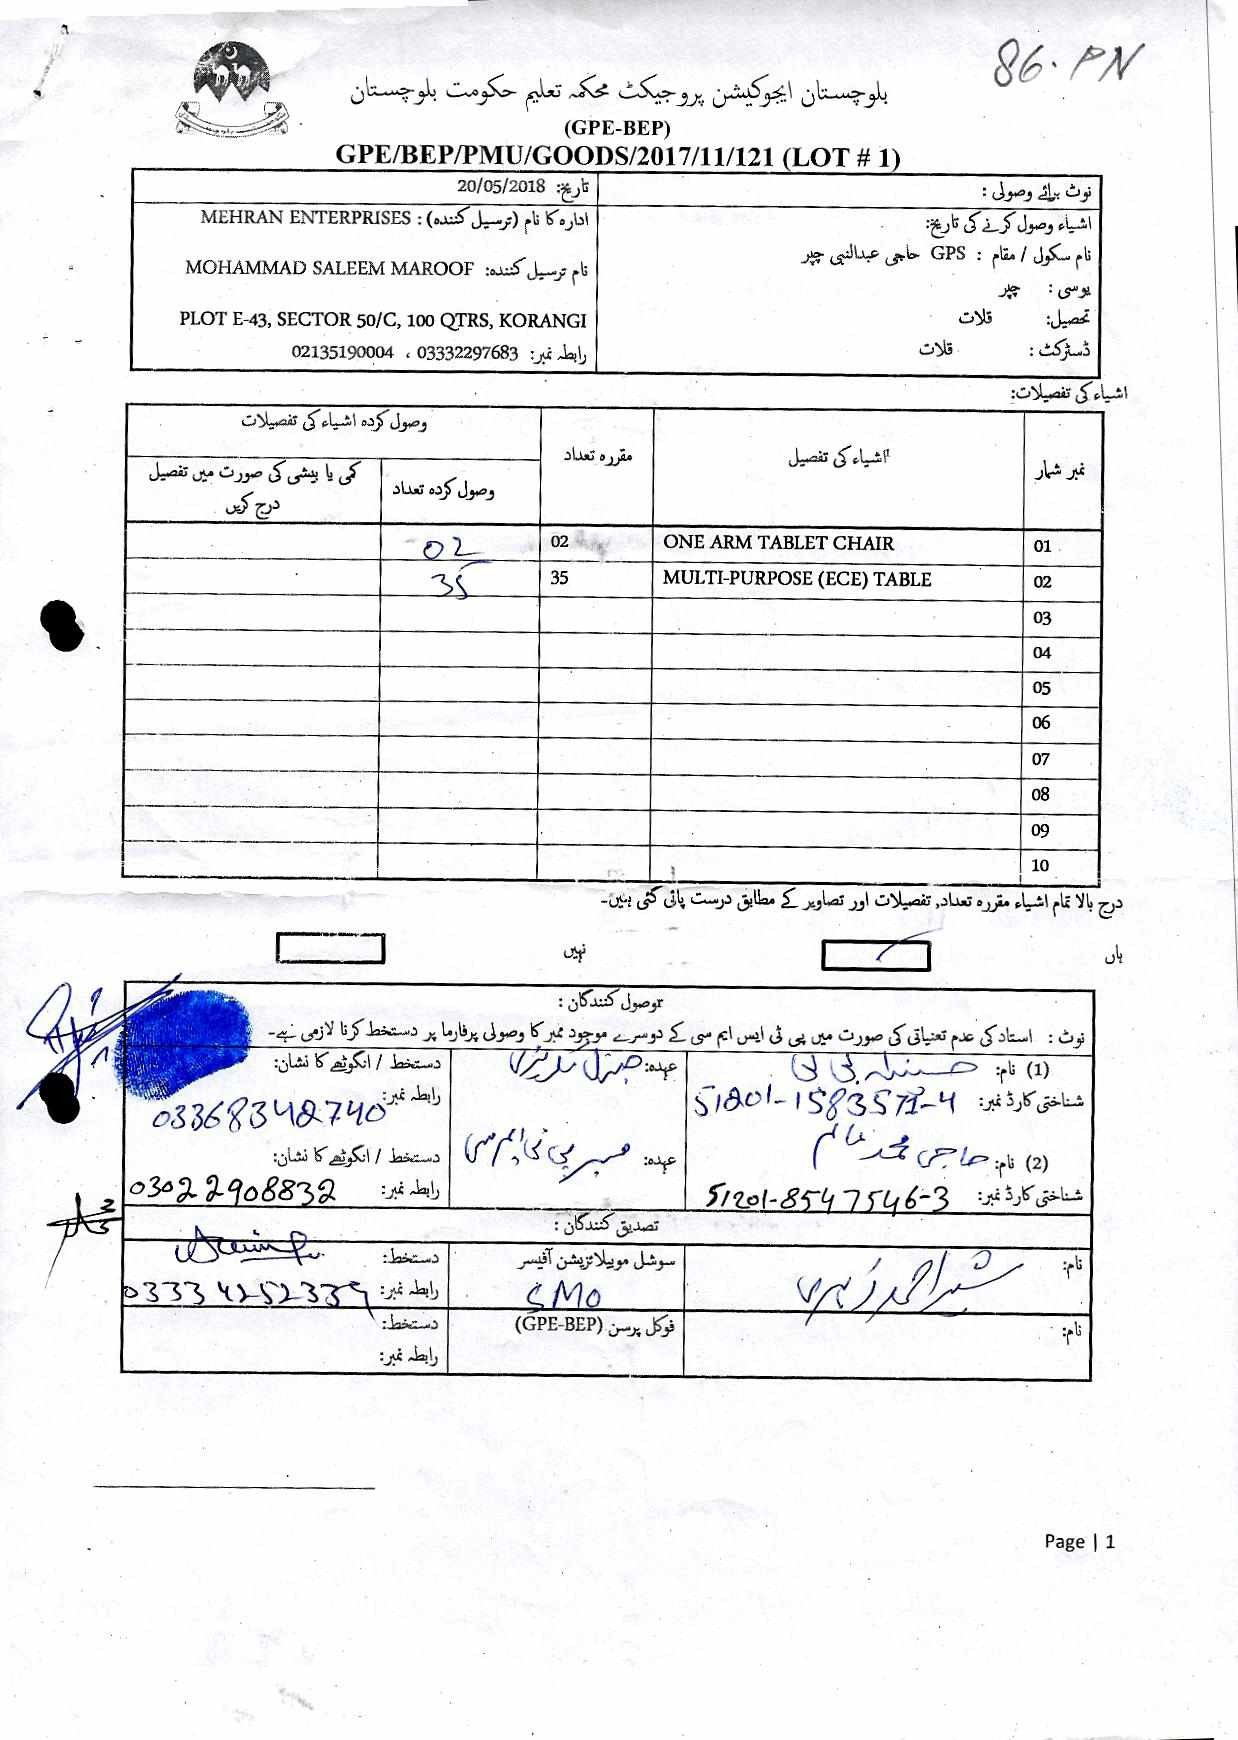 86. PN
بلوچستان ایجوکیشن پروجیکٹ محکمہ تعلیم حکومت بلوچستان
(GPE-BEP)
GPE/BEP/PMU/GOODS/2017/11/121 (LOT # 1)
نوٹ برائے وصولی :
تاریخ: 20/05/2018
اشیاء وصول کرنے کی تاریخ:
نام سکول / مقام : GPS حاجی عبدالنبی چپر
یوسی : چپر
تحصیل: قلات
ڈسٹرکٹ : قلات
ادارہ کا نام (ترسیل کنندہ) : MEHRAN ENTERPRISES
نام ترسیل کنندہ: MOHAMMAD SALEEM MAROOF
PLOT E-43, SECTOR 50/C, 100 QTRS, KORANGI
رابطہ نمبر: 03332297683 ، 02135190004
اشیاء کی تفصیلات:
نمبر شمار اشیاء کی تفصیل مقررہ تعداد وصول کردہ اشیاء کی تفصیلات
وصول کردہ تعداد کمی یا بیشی کی صورت میں تفصیل درج کریں
01 ONE ARM TABLET CHAIR 02 02
02 MULTI-PURPOSE (ECE) TABLE 35 35
03
04
05
06
07
08
09
10
درج بالا تمام اشیاء مقررہ تعداد, تفصیلات اور تصاویر کے مطابق درست پائی گئی ہیں۔
ہاں نہیں
وصول کنندگان :
نوٹ : استاد کی عدم تعنیاتی کی صورت میں پی ٹی ایس ایم سی کے دوسرے موجود ممبر کا وصولی پرفارما پر دستخط کرنا لازمی ہے۔
(1) نام: بی بی عہدہ: جنرل دستخط / انگوٹھے کا نشان:
شناختی کارڈ نمبر: رابطہ نمبر: 03368342740
(2) نام: حاجی محمد عالم عہدہ: ممبر پی ٹی ایم سی دستخط / انگوٹھے کا نشان:
شناختی کارڈ نمبر: 51201-8547546-3 رابطہ نمبر: 03022908832
تصدیق کنندگان :
نام: شبیر احمد زہری سوشل موبیلائزیشن آفیسر دستخط:
SMO رابطہ نمبر: 03334252339
نام: فوکل پرسن (GPE-BEP) دستخط:
رابطہ نمبر:
Page | 1